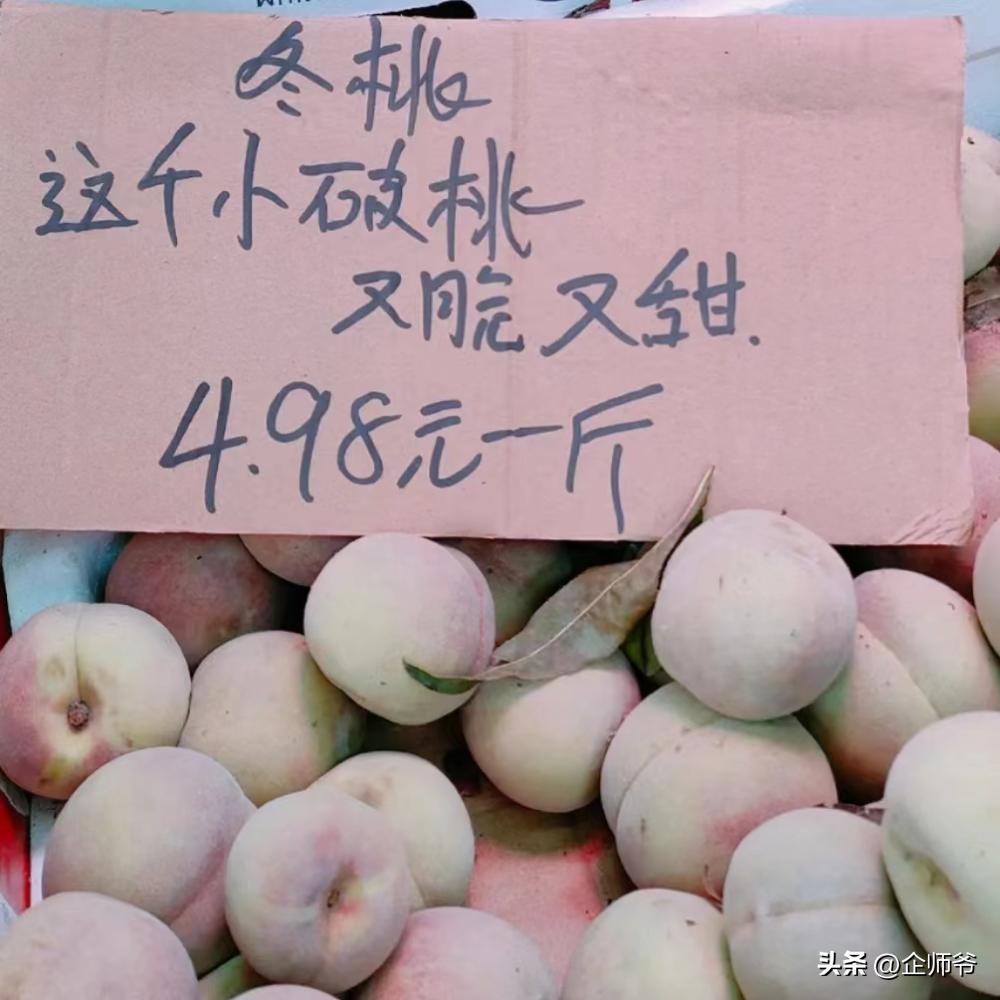 冬桃
这千小破桃
又脆又甜.
4.98元一斤
头条 @企师爷